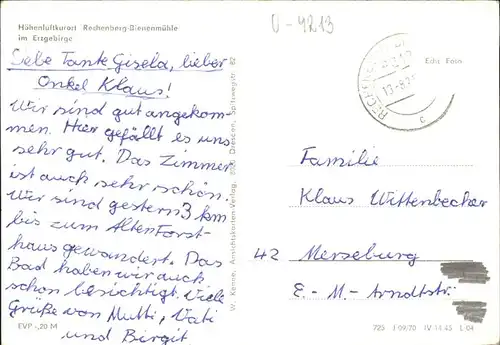 U-4213
Höhenluftkurort Rechenberg-Bienenmühle
im Erzgebirge
Liebe Tante Gisela, lieber
Onkel Klaus!
Wir sind gut angekom-
men. Hier gefällt es uns
sehr gut. Das Zimmer
ist auch sehr schön.
Wir sind gestern 3 km
bis zum Alten Forst-
haus gewandert. Das
Bad haben wir auch
schon besichtigt. Viele
Grüße von Mutti, Vati
und Birgit
EVP -,20 M
W. Kenne, Ansichtskarten-Verlag, Dresden, Spitzwegstr. 82
Echt Foto
c
Familie
Klaus Wittenbecher
42 Merseburg
E.-M.-Arndtstr.
725 J 09/70 IV-14-45 L 04